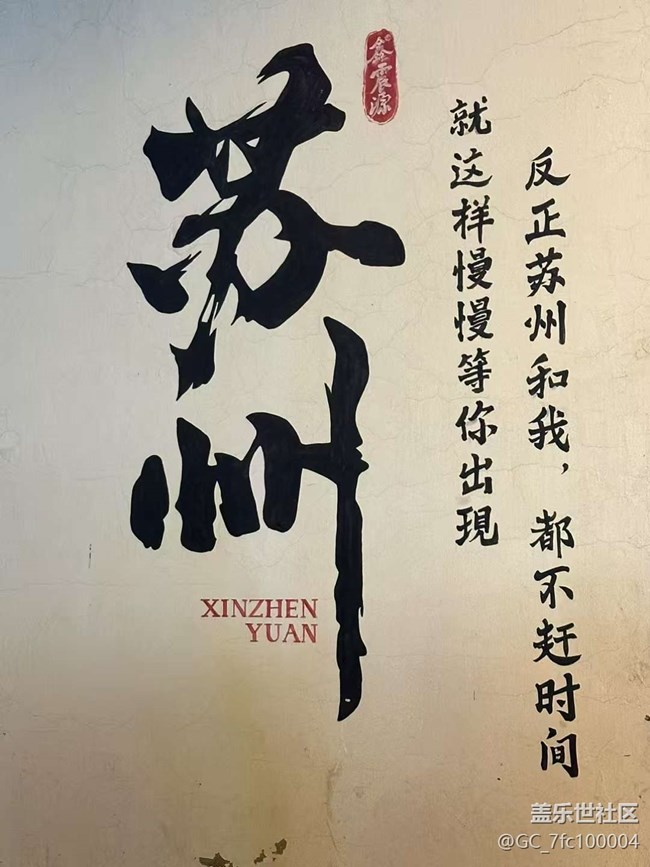 反正苏州和我，都不赶时间
就这样慢慢等你出現
鑫震源
苏州
XINZHEN
YUAN
盖乐世社区
@GC_7fc100004